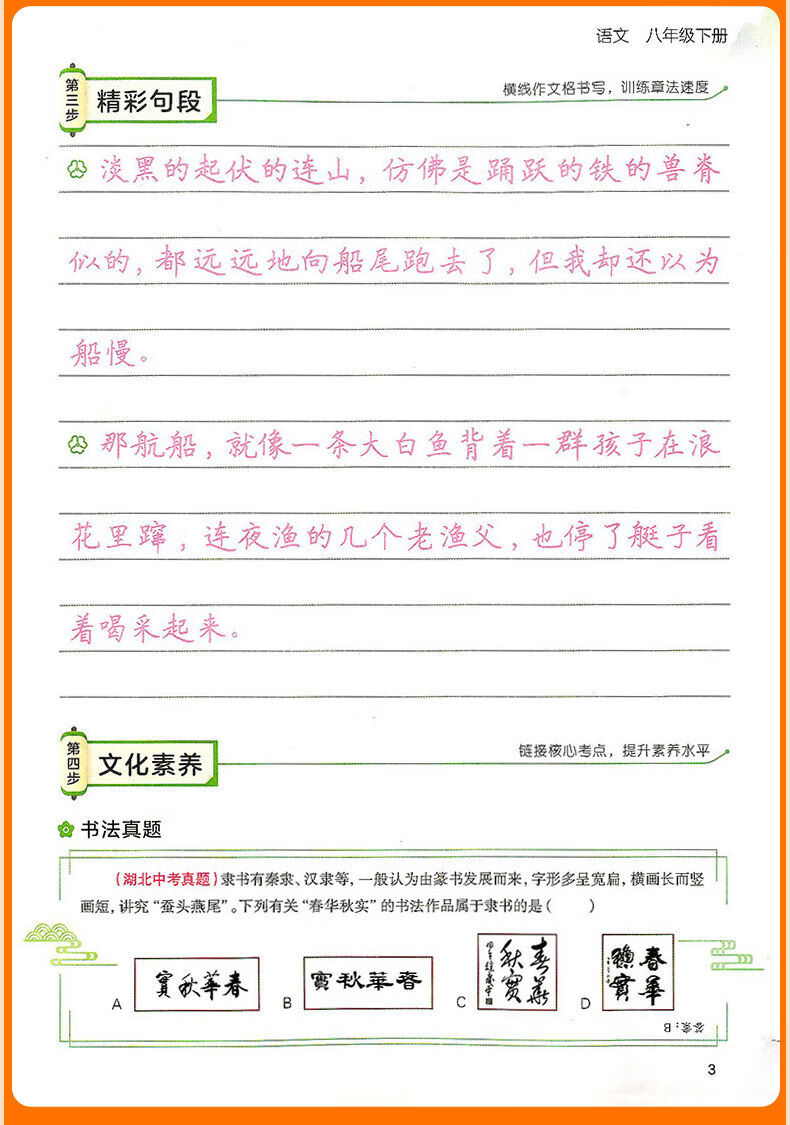 语文 八年级下册
第三步 精彩句段
横线作文格书写，训练章法速度
淡黑的起伏的连山，仿佛是踊跃的铁的兽脊
似的，都远远地向船尾跑去了，但我却还以为
船慢。
那航船，就像一条大白鱼背着一群孩子在浪
花里蹿，连夜渔的几个老渔父，也停了艇子看
着喝采起来。
第四步 文化素养
链接核心考点，提升素养水平
书法真题
（湖北中考真题）隶书有秦隶、汉隶等，一般认为由篆书发展而来，字形多呈宽扁，横画长而竖
画短，讲究“蚕头燕尾”。下列有关“春华秋实”的书法作品属于隶书的是（ ）
A 實秋華春
B 實秋華春
C 春華秋實
D 春華秋實
答案：B
3